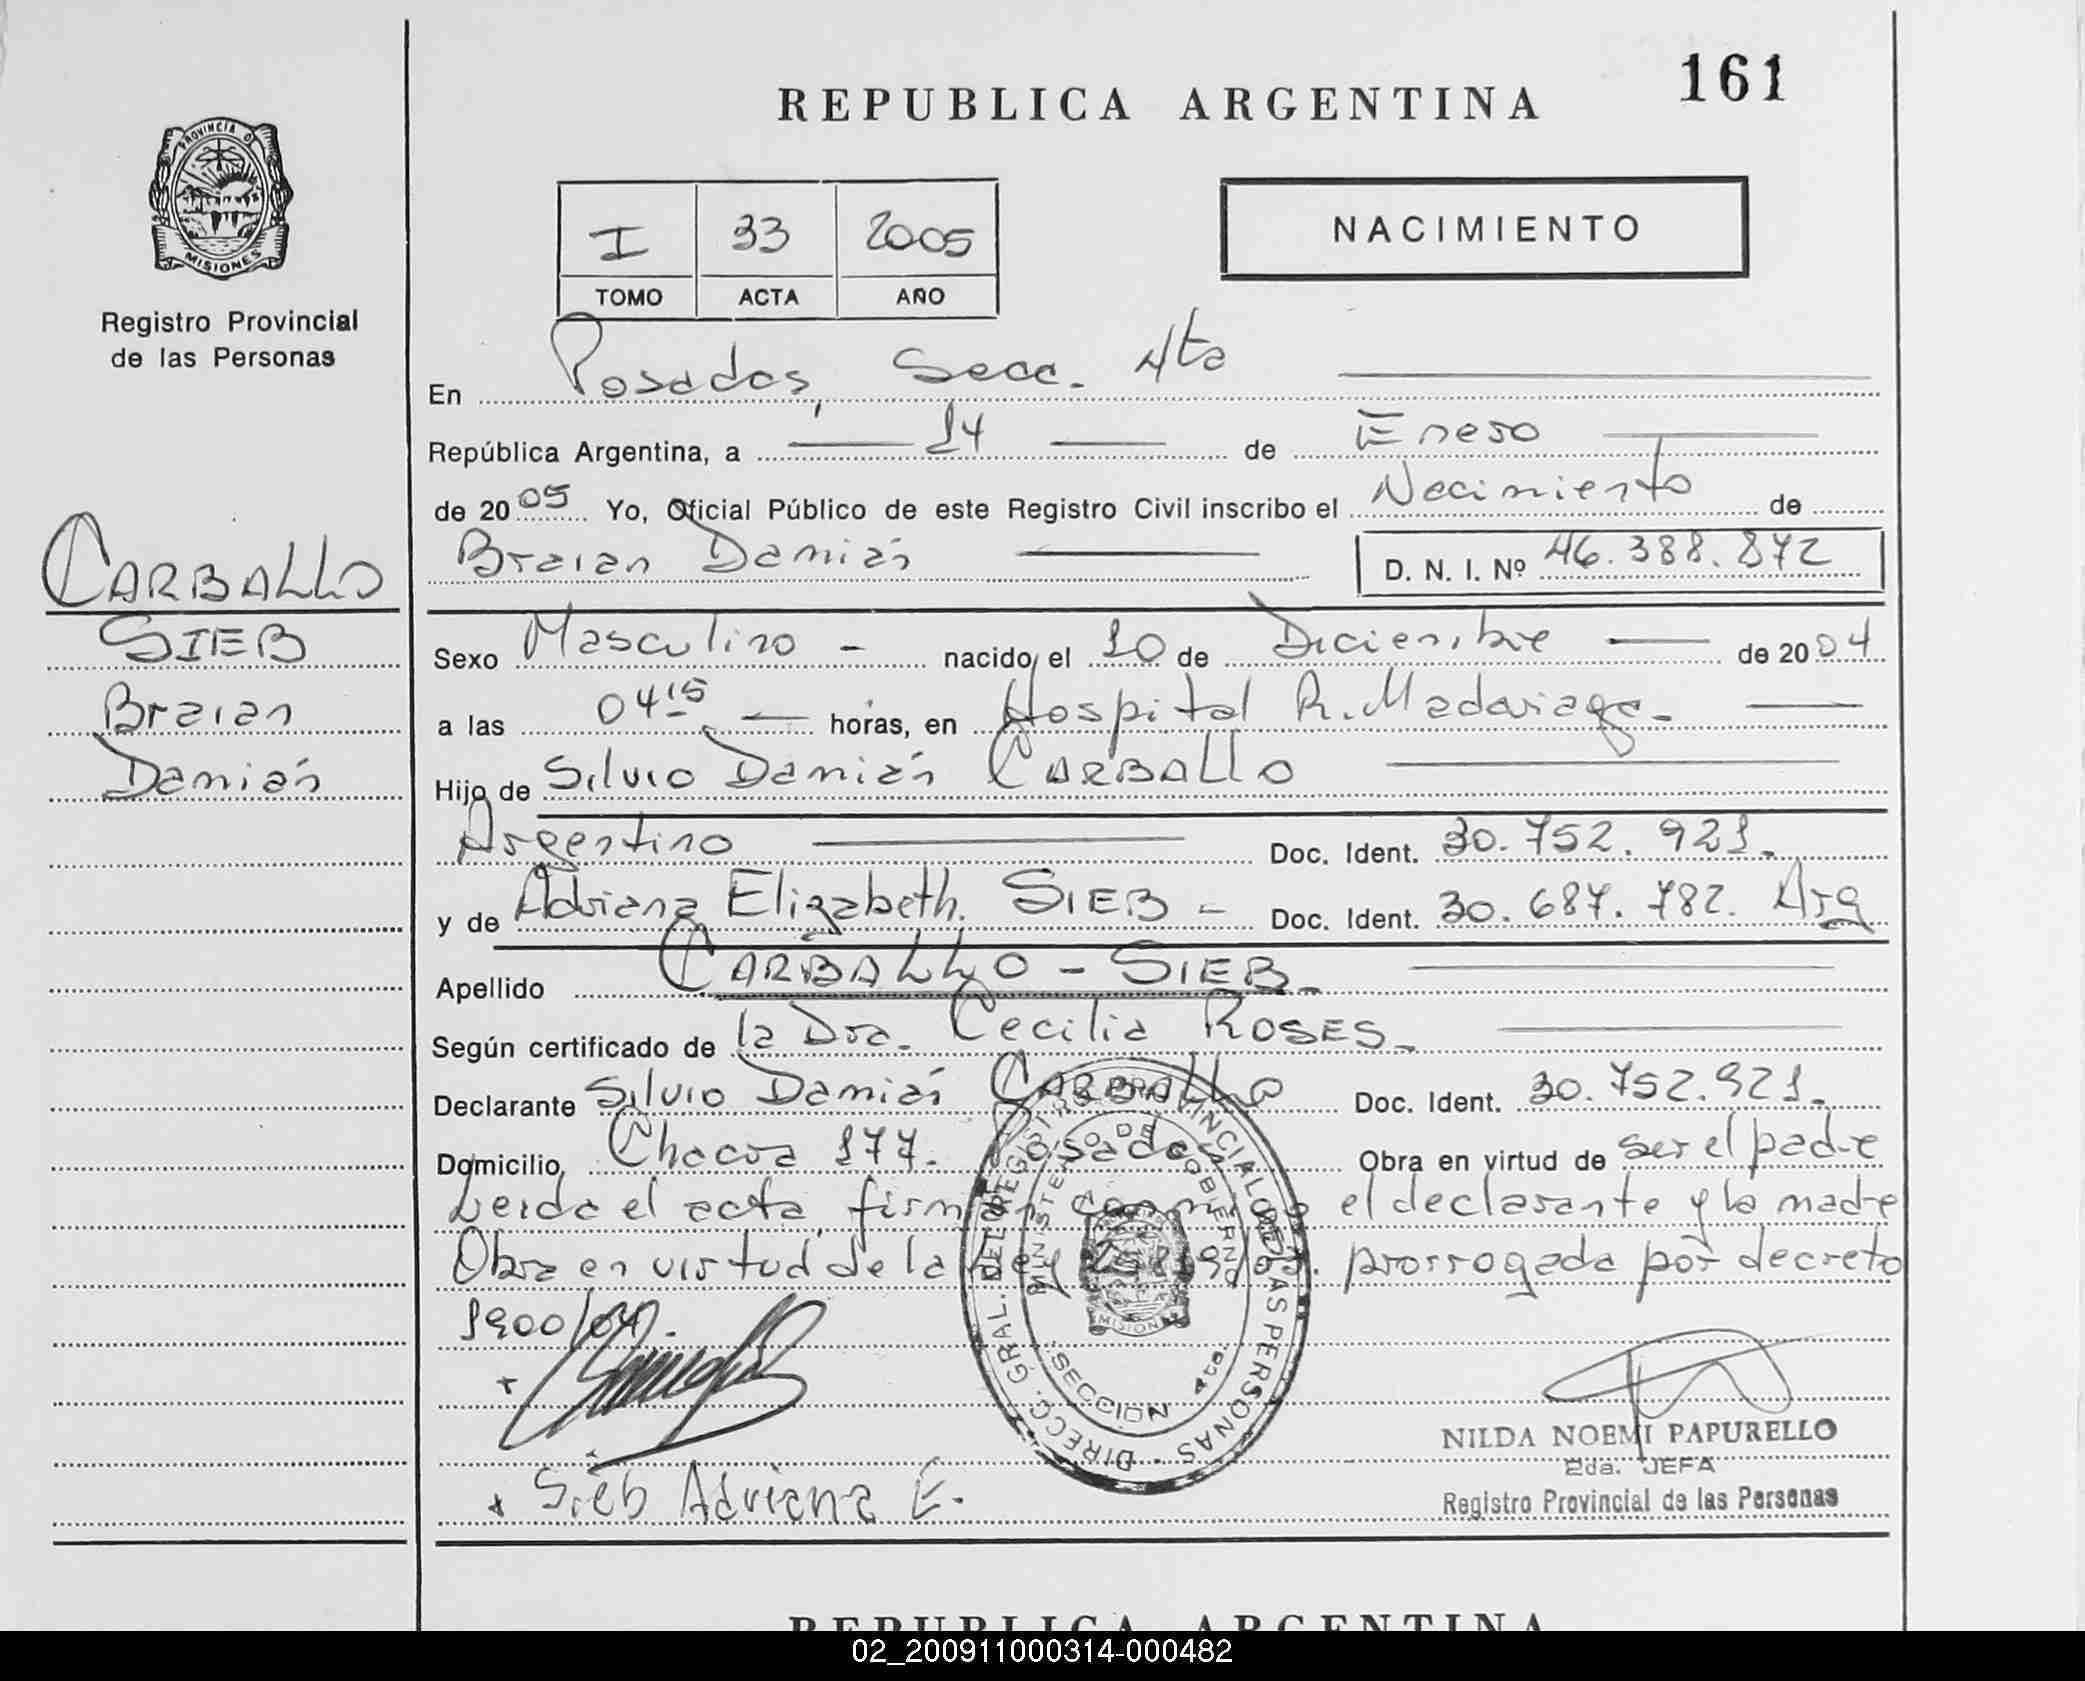 161
REPUBLICA ARGENTINA
PROVINCIA D
MISIONES
Registro Provincial
de las Personas
I 33 2005
TOMO ACTA AÑO
NACIMIENTO
En Posadas, Secc. 4ta
República Argentina, a 14 de Enero
de 2005 Yo, Oficial Público de este Registro Civil inscribo el Nacimiento de
Braian Damián D. N. I. Nº 46.388.872
CARBALLO
SIEB
Braian
Damián
Sexo Masculino - nacido el 10 de Diciembre de 2004
a las 04 15 horas, en Hospital R. Madariaga.
Hijo de Silvio Damián CARBALLO
Argentino Doc. Ident. 30.752.921.
y de Adriana Elizabeth SIEB - Doc. Ident. 30.687.782. Arg
Apellido CARBALLO - SIEB
Según certificado de la Dra. Cecilia ROSES.
Declarante Silvio Damián CARBALLO Doc. Ident. 30.752.921.
Domicilio Chacra 177. Posadas Obra en virtud de ser el padre
Leida el acta, firman conmigo el declarante y la madre
Obra en virtud de la Ley prorrogada por decreto
1900/04.
DIRECC. GRAL. DEL REGISTRO PROVINCIAL DE LAS PERSONAS
MINISTERIO DE GOBIERNO
MISIONES
SECCION 4ta.
NILDA NOEMI PAPURELLO
2da. JEFA
Registro Provincial de las Personas
Sieb Adriana E.
REPUBLICA ARGENTINA
02_200911000314-000482